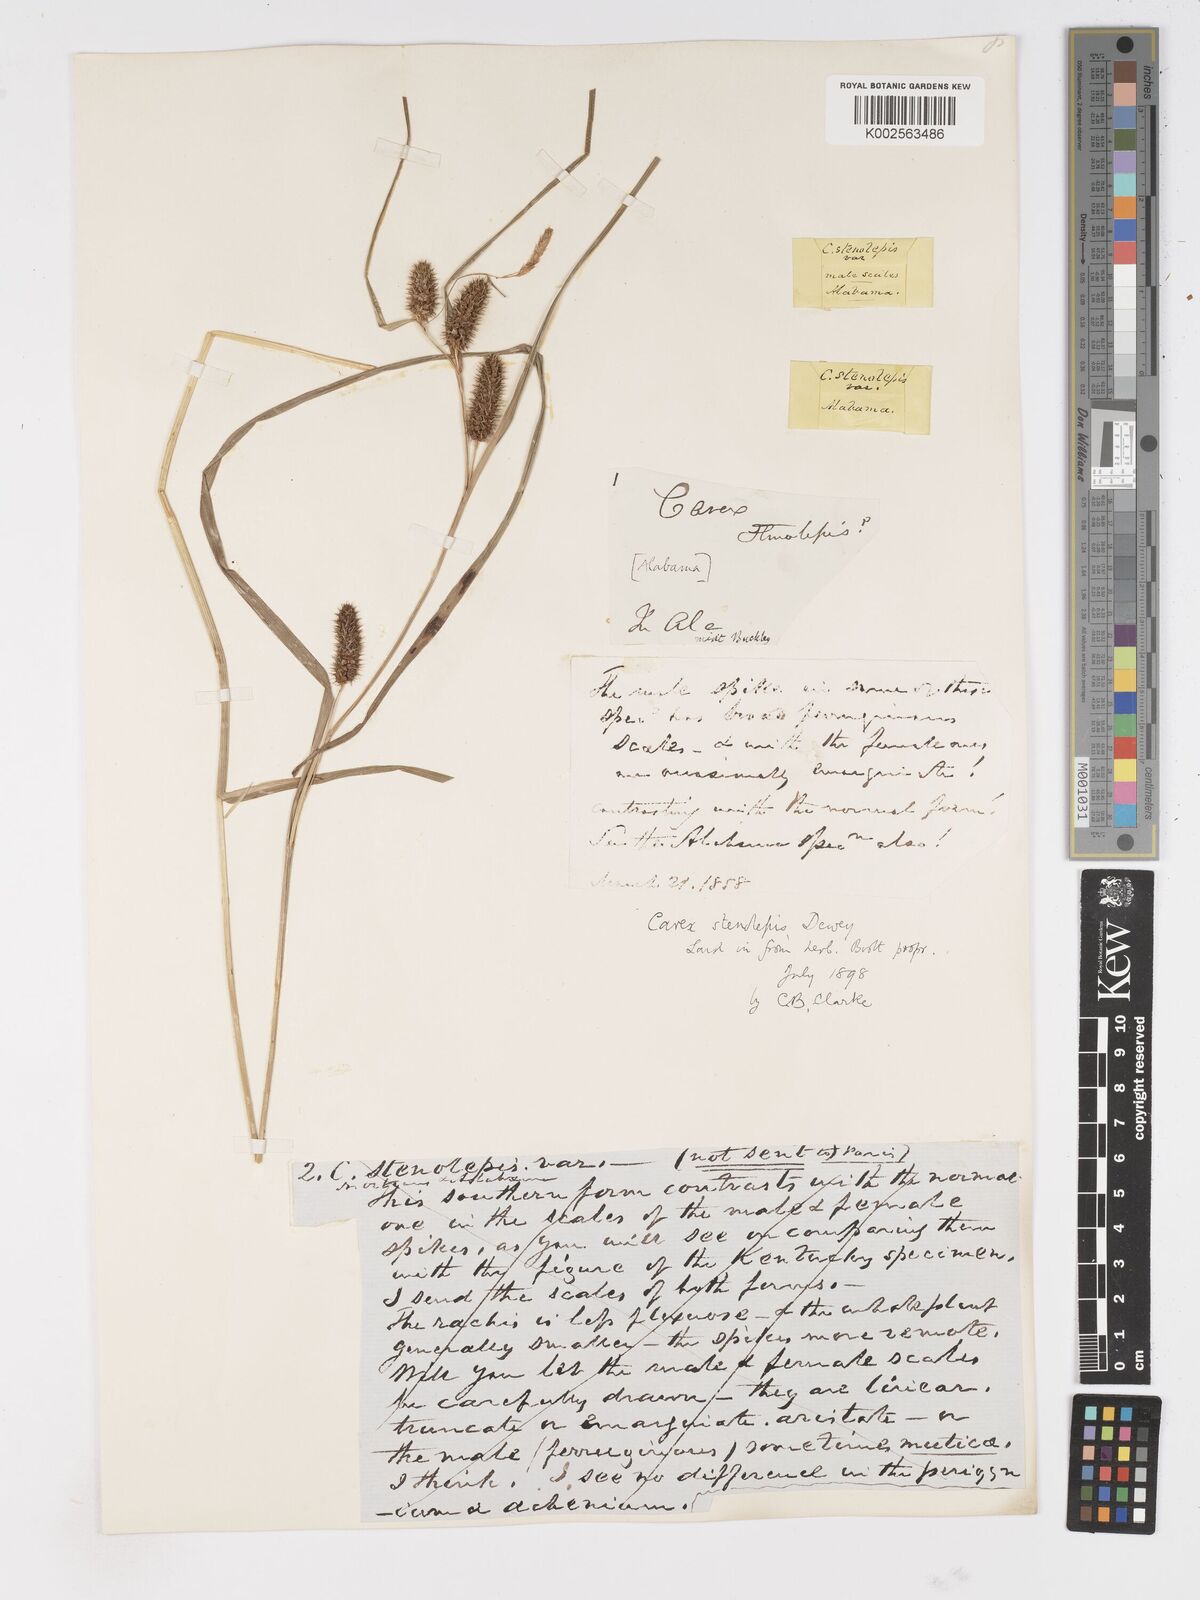 ROYAL BOTANIC GARDENS KEW
K002563486
C. stenolepis
var
male scales
Alabama.
C. stenolepis
var.
Alabama.
1
Carex
Stenolepis?
[Alabama]
Ala
misit Buckley
The male spikes in some of these
spec has broad ferruginous
scales - & with the female ones
are occasionally emarginate!
contrasting with the normal form!
See the Alabama specn also!
March 21. 1858
Carex stenolepis Dewey
Laid in from herb. Boott propr.
July 1898
by C.B. Clarke
2. C. stenolepis. var. — (not sent to Paris)
This southern form contrasts with the normal
one in the scales of the male & female
spikes, as you will see on comparing them
with the figure of the Kentucky specimen.
I send the scales of both forms. —
The rachis is less flexuose - & the whole plant
generally smaller - the spikes more remote.
Will you let the male & female scales
be carefully drawn - they are linear.
truncate or emarginate. aristate - or
the male (ferruginous) sometimes muticæ.
I think. I see no difference in the perigyn
-ium & achenium.
inches
centimetres
Density
Don Williams
M001031
Royal Botanic Gardens
Kew
0 1 2 3 4 5 6 7 8 9 10
cm
copyright reserved